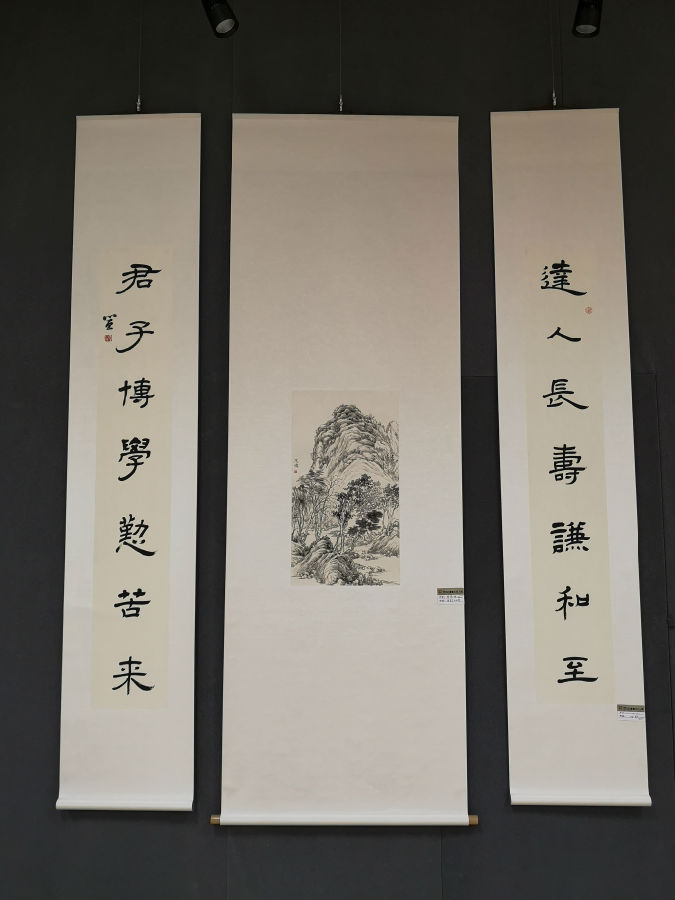 達人長壽謙和至
君子博學懃苦来